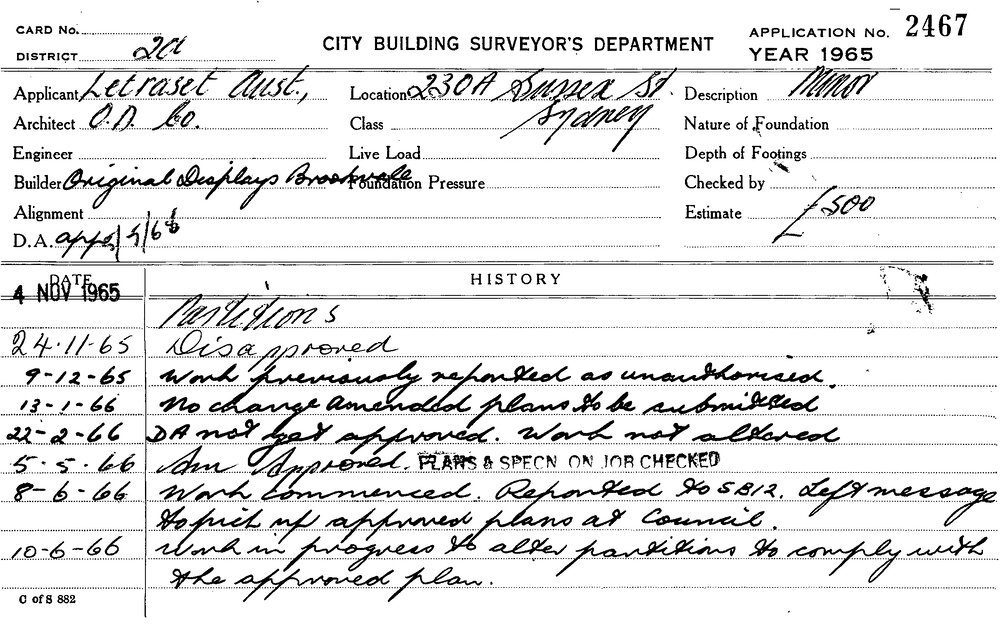 CARD No.
DISTRICT 2d
CITY BUILDING SURVEYOR'S DEPARTMENT
APPLICATION No. 2467
YEAR 1965
Applicant Letraset Aust.,
Location 230A Sussex St.
Sydney
Description Minor
Architect O.D. Co.
Class
Nature of Foundation
Engineer
Live Load
Depth of Footings
Builder Original Displays Brookvale
Foundation Pressure
Checked by
Alignment
Estimate £500
D.A.
DATE
HISTORY
4 NOV 1965
Partitions
24.11.65 Disapproved
9-12-65 Work previously reported as unauthorised.
13-1-66 No change amended plans to be submitted
22-2-66 DA not yet approved. Work not altered
5.5.66 Am Approved. PLANS & SPECN ON JOB CHECKED
8-6-66 Work commenced. Reported to SB12. Left message
to pick up approved plans at Council.
10-6-66 Work in progress to alter partitions to comply with
the approved plan.
C of S 882